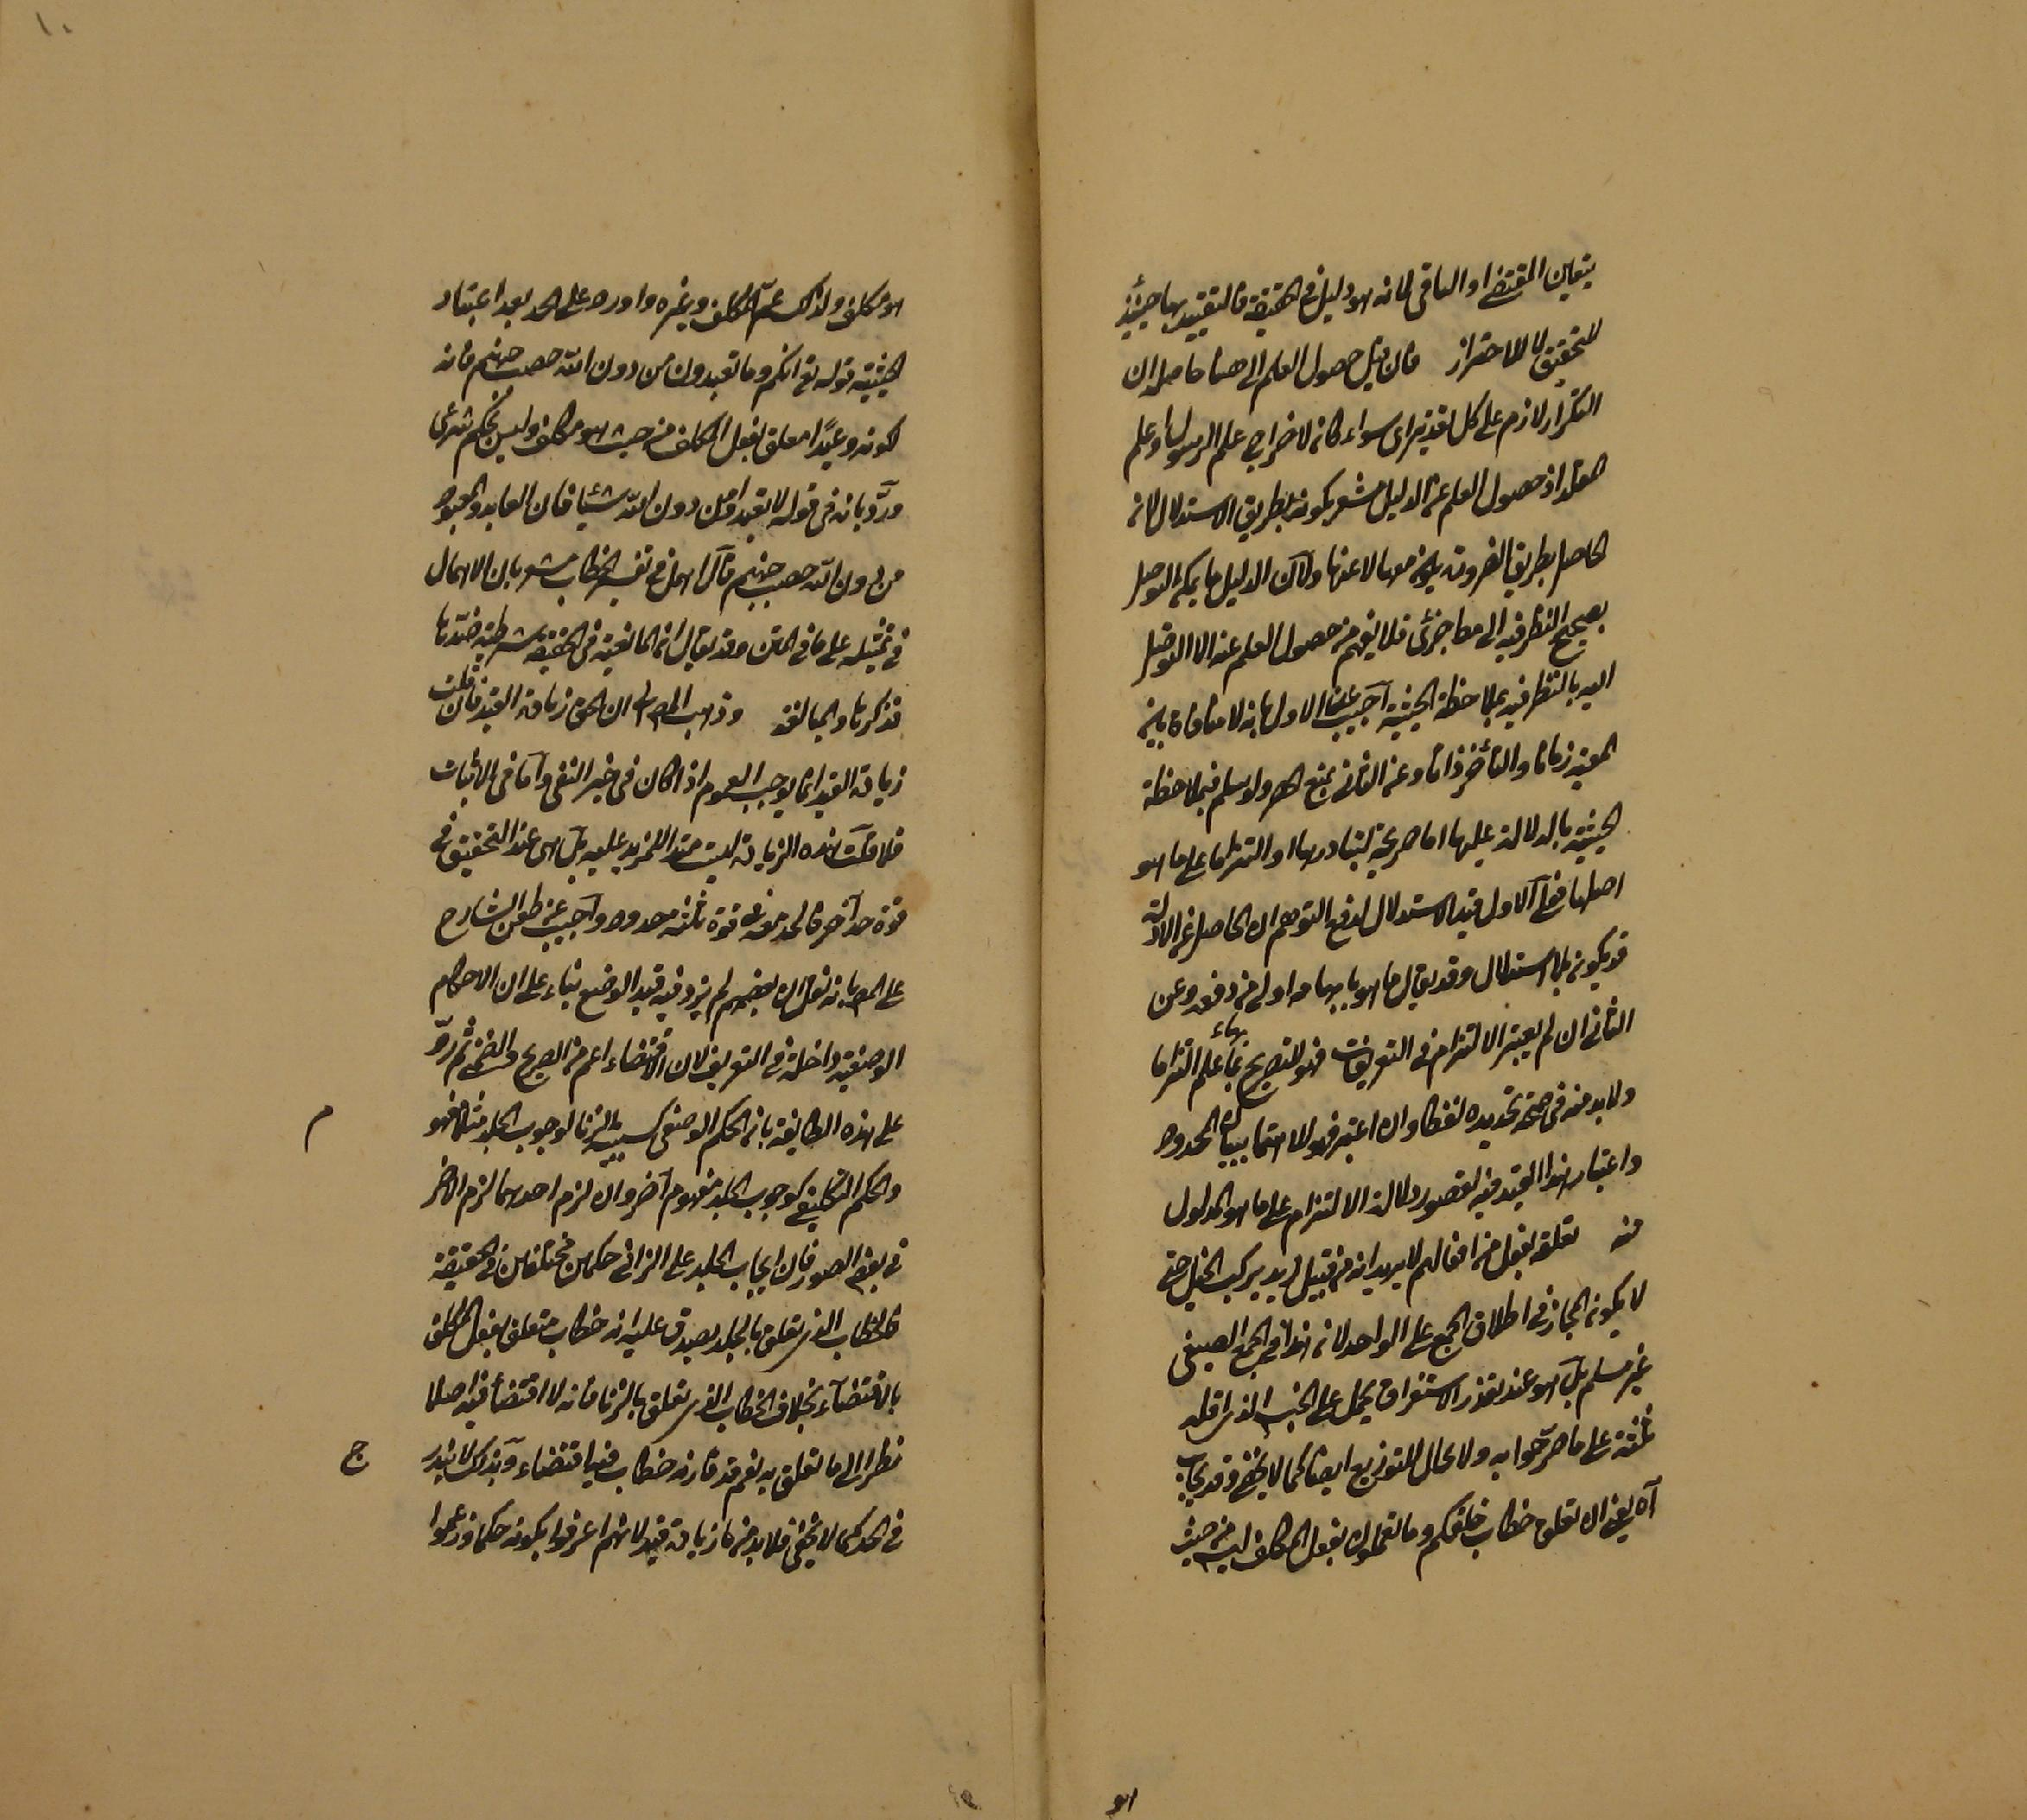 يتعين المقتضى او النافى لانه هو دليل فى الحقيقة فالتقييد بها حينئذ
للتحقيق لا للاحتراز فان قيل حصول العلم الى هنا حاصله ان
التكرار لازم على كل تقدير اى سواء كانه لاخراج علم الرسول او علم
المقلد اذ حصول العلم عن الدليل مشعر بكونه بطريق الاستدلال لانه
الحاصل بطريق الضرورة يكون معها لا عنها ولان الدليل ما يمكن التوصل
بصحيح النظر فيه الى مط جزئى فلا يفهم من حصول العلم عنه الا التوصل
اليه بالنظر فيه بملاحظة الحيثية اجيب عن الاول بانه لا منافاة بين
المعية زمانا والتأخر ذاتا وعن الثانى بمنع الحصر ولو سلم فبملاحظة
الحيثية بالدلالة عليها اما صريحة لتبادرها او التزاما على ما هو
اصلها فعلى الاول قيد الاستدلال لدفع التوهم ان الحاصل عن الادلة
قد يكون بلا استدلال وقد يقال ما هو بابهامه اولى من دفعه وعن
الثانى ان لم يعتبر الالتزام فى التعريفات فهو للتصريح بما علم التزاما
ولا بد منه فى صحة تحديده لفظا وان اعتبر فهو للاهتمام ببيان المحدود
واعتبار هذا القيد فيه لقصور دلالة الالتزام على ما هو المدلول
منه تعلقه بفعل من افعالهم لا يريد انه من قبيل زيد يركب الخيل حتى
لا يكون المجاز فى اطلاق الجمع على الواحد لانه هذا فى الجمع الصيغى
غير مسلم بل هو عند تعذر الاستغراق يحمل على الجنس الذى اقله
ثلثة على ما صرحوا به ولا مجال للتوزيع ايضا كما لا يخفى وقد يجاب
اه يعنى ان تعلق خطاب خلقكم وما تعملون بفعل المكلف ليس من حيث
هو
هو مكلف ولذلك عم المكلف وغيره واورد على الحد بعد اعتبار
الحيثية قوله تع انكم وما تعبدون من دون الله حصب جهنم فانه
لكونه وعيدا معلق بفعل المكلف من حيث هو مكلف وليس بحكم شرعى
ورد بانه فى قوله لا تعبدوا من دون الله شيئا فان العابد والمعبود
من دون الله حصب جهنم قال اهل فى تفسير الخطاب مشعر بان الاهمال
فى تمثيله على ما فى المتن وقد يقال ان المانعية فى الحقيقة شرطية ضدها
فذكرها والمبالغة وذهب المص الى ان الحق زيادة القيد فان قلت
زيادة القيد انما يوجب العموم اذا كان فى خبر النفى واما فى الاثبات
فلا قلت هذه الزيادة ليست مقيد المزيد عليه بل هى عند التحقيق فى
قوة حد آخر فالحد معه فى قوة ثلثة حدود واجيب عن طعن الشارح
على المص بانه نقل ان بعضهم لم يزد فيه قيد الوضع بناء على ان الاحكام
الوضعية داخلة فى التعريف لان الاقتضاء اعم من الصريح والضمنى ثم رد
على هذه الطايفة بانه الحكم الوضعى كسببية الزنا لوجوب الجلد مثلا مفهوم
م
والحكم التكليفى كوجوب الجلد مفهوم آخر وان لزم احدهما لزم الاخر
فى بعض الصور فان ايجاب الجلد على الزانى حكمين مختلفين فى الحقيقة
فالخطاب الذى تعلق بالجلد يصدق عليه انه خطاب متعلق بفعل المكلف
بالاقتضاء بخلاف الخطاب الذى تعلق بالزنا فانه لا اقتضاء فيه اصلا
نظرا الى ما تعلق به نعم قد قارنه خطاب فيه اقتضاء وبذلك لا يندرج
ج
فى الحد كما لا يخفى فلا بد من زيادة قيد لانهم اعرفوا بكونه حكما وزعموا